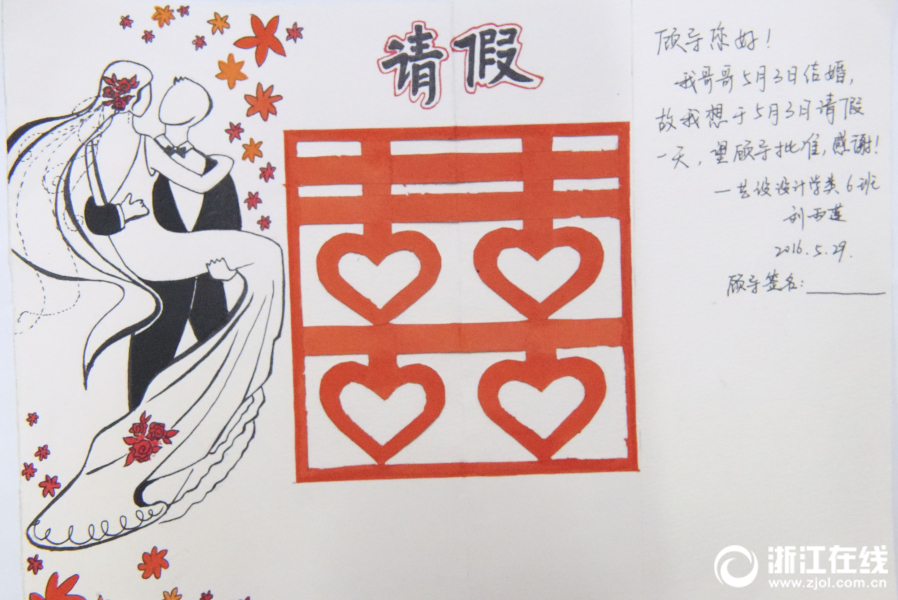 请假
顾导您好！
我哥哥5月3日结婚，
故我想于5月3日请假
一天，望顾导批准，感谢！
—艺设设计学类6班
刘雨莲
2016.5.29.
顾导签名：
浙江在线
www.zjol.com.cn